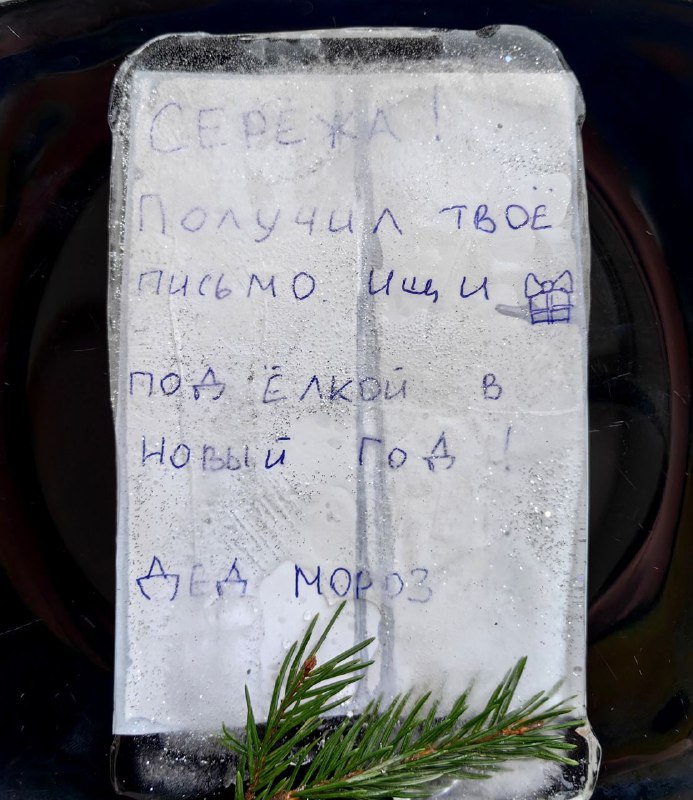 СЕРЁЖА!
ПОЛУЧИЛ ТВОЁ
ПИСЬМО ИЩИ
ПОД ЁЛКОЙ В
НОВЫЙ ГОД!
ДЕД МОРОЗ